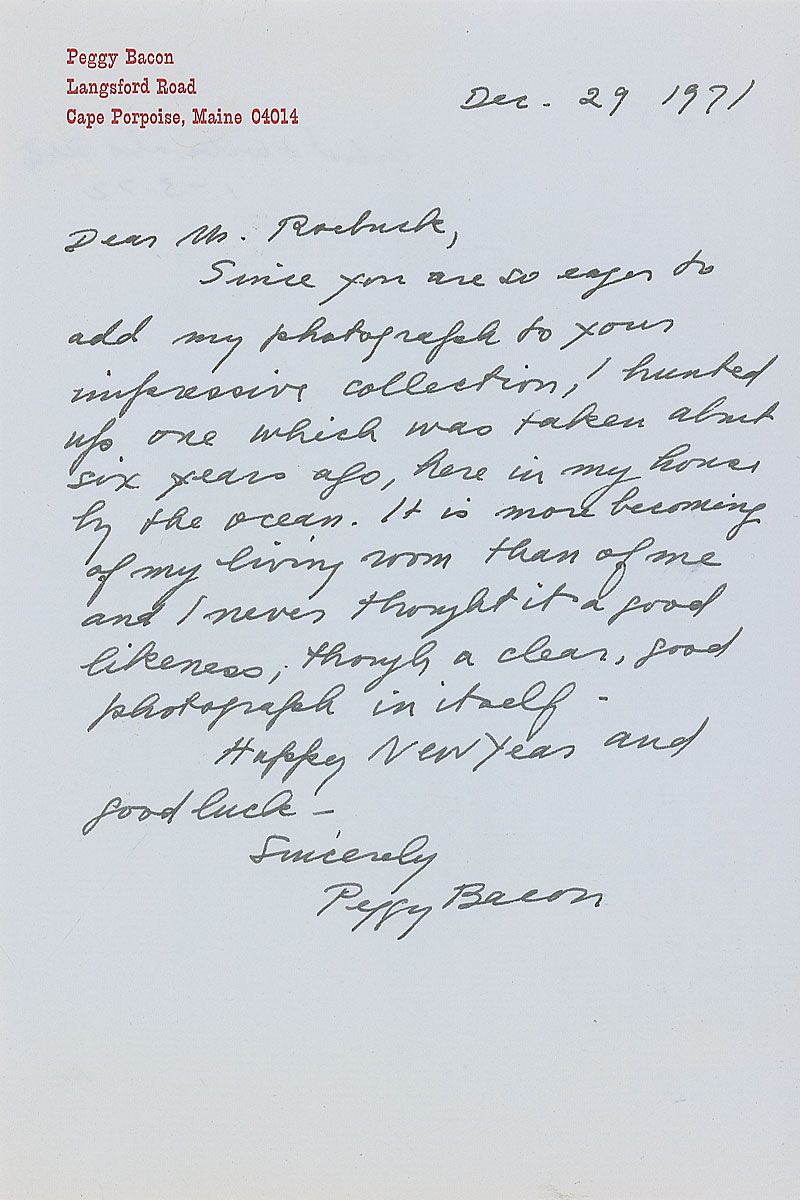 Peggy Bacon
Langsford Road
Cape Porpoise, Maine 04014
Dec. 29 1971
Dear Mr. Roebuck,
Since you are so eager to
add my photograph to your
impressive collection, I hunted
up one which was taken about
six years ago, here in my house
by the ocean. It is more becoming
of my living room than of me
and I never thought it a good
likeness; though a clear, good
photograph in itself -
Happy New Year and
good luck -
Sincerely
Peggy Bacon